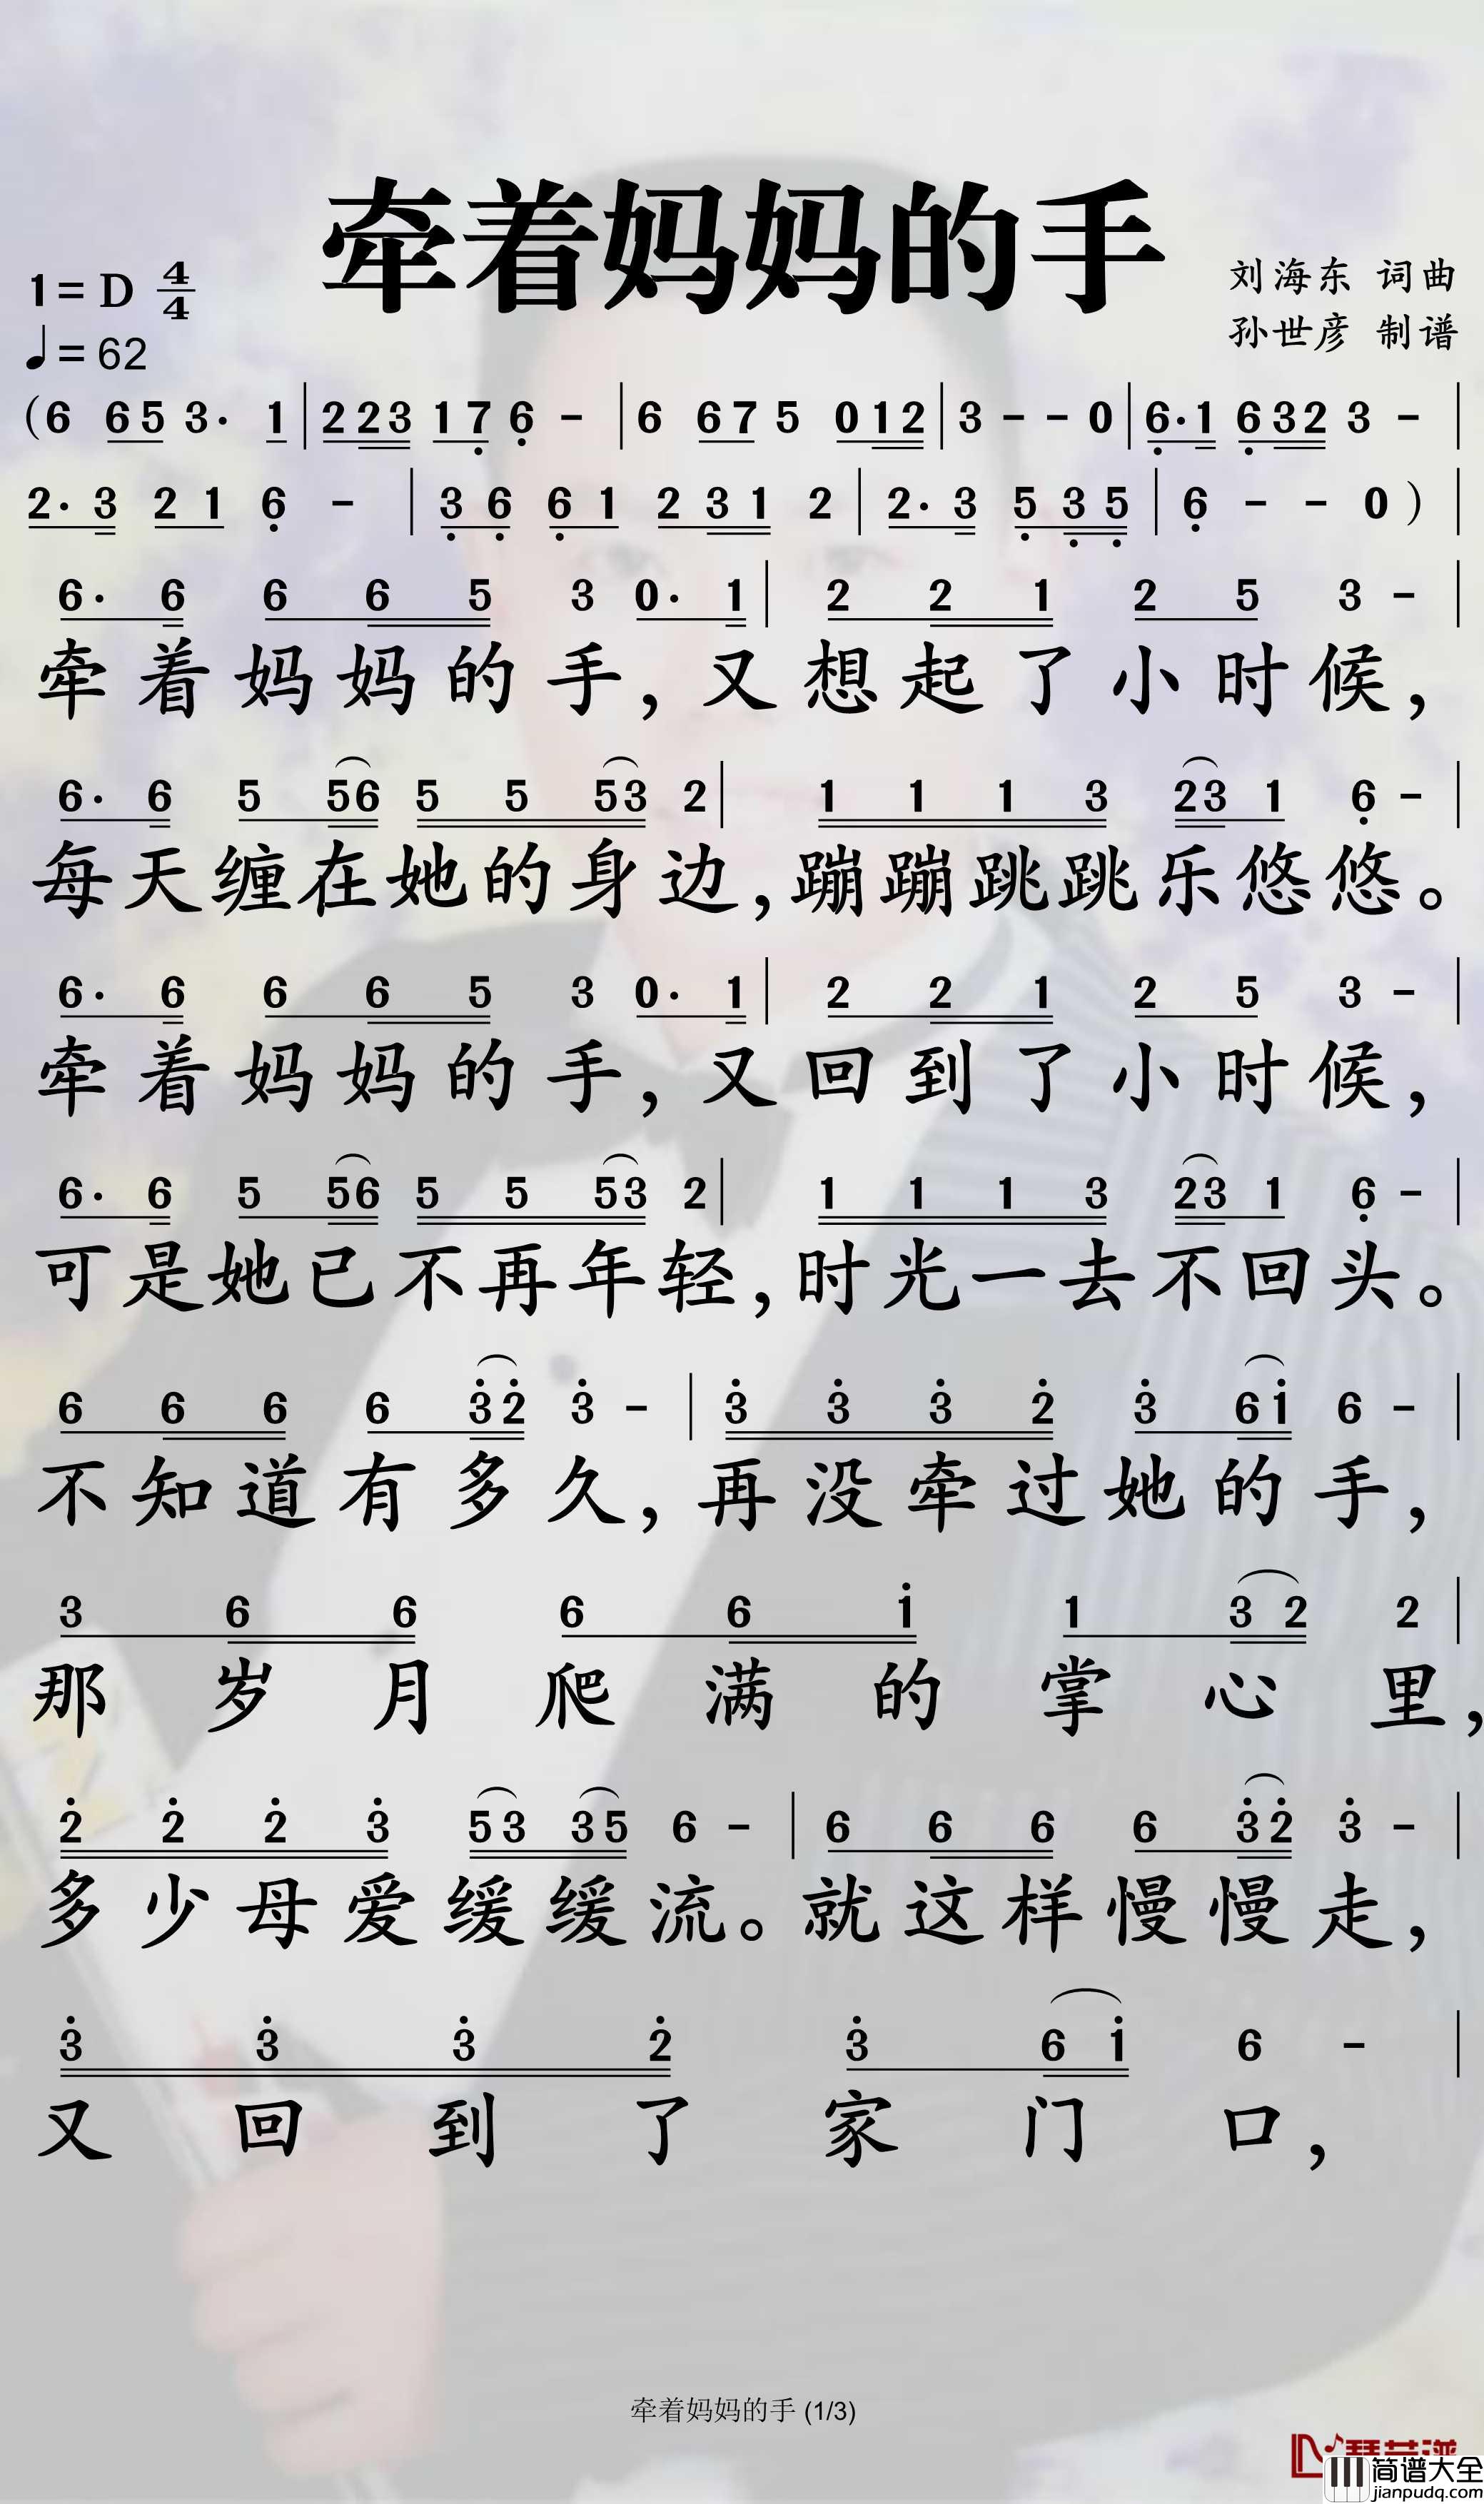 牵着妈妈的手
1=D 4/4
刘海东 词曲
♩=62
孙世彦 制谱
(6 65 3· 1 | 223 17 6 - | 6 67 5 012 | 3 - - 0 | 6·1 632 3 - |
2·3 21 6 - | 36 61 231 2 | 2·3 535 | 6 - - 0 ) |
6· 6 6 6 5 3 0· 1 | 2 2 1 2 5 3 - |
牵着妈妈的手，又想起了小时候，
6· 6 5 56 5 5 53 2 | 1 1 1 3 23 1 6 - |
每天缠在她的身边，蹦蹦跳跳乐悠悠。
6· 6 6 6 5 3 0· 1 | 2 2 1 2 5 3 - |
牵着妈妈的手，又回到了小时候，
6· 6 5 56 5 5 53 2 | 1 1 1 3 23 1 6 - |
可是她已不再年轻，时光一去不回头。
6 6 6 6 32 3 - | 3 3 3 2 3 61 6 - |
不知道有多久，再没牵过她的手，
3 6 6 6 6 1 1 32 2 |
那岁月爬满的掌心里，
2 2 2 3 53 35 6 - | 6 6 6 6 32 3 - |
多少母爱缓缓流。就这样慢慢走，
3 3 3 2 3 61 6 - |
又回到了家门口，
牵着妈妈的手 (1/3)
简谱大全
jianpudq.com